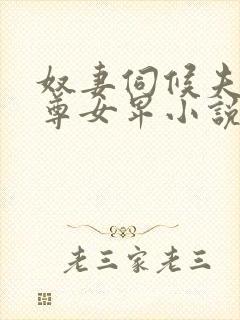 奴妻伺候夫
尊女卑小說
老三家老三